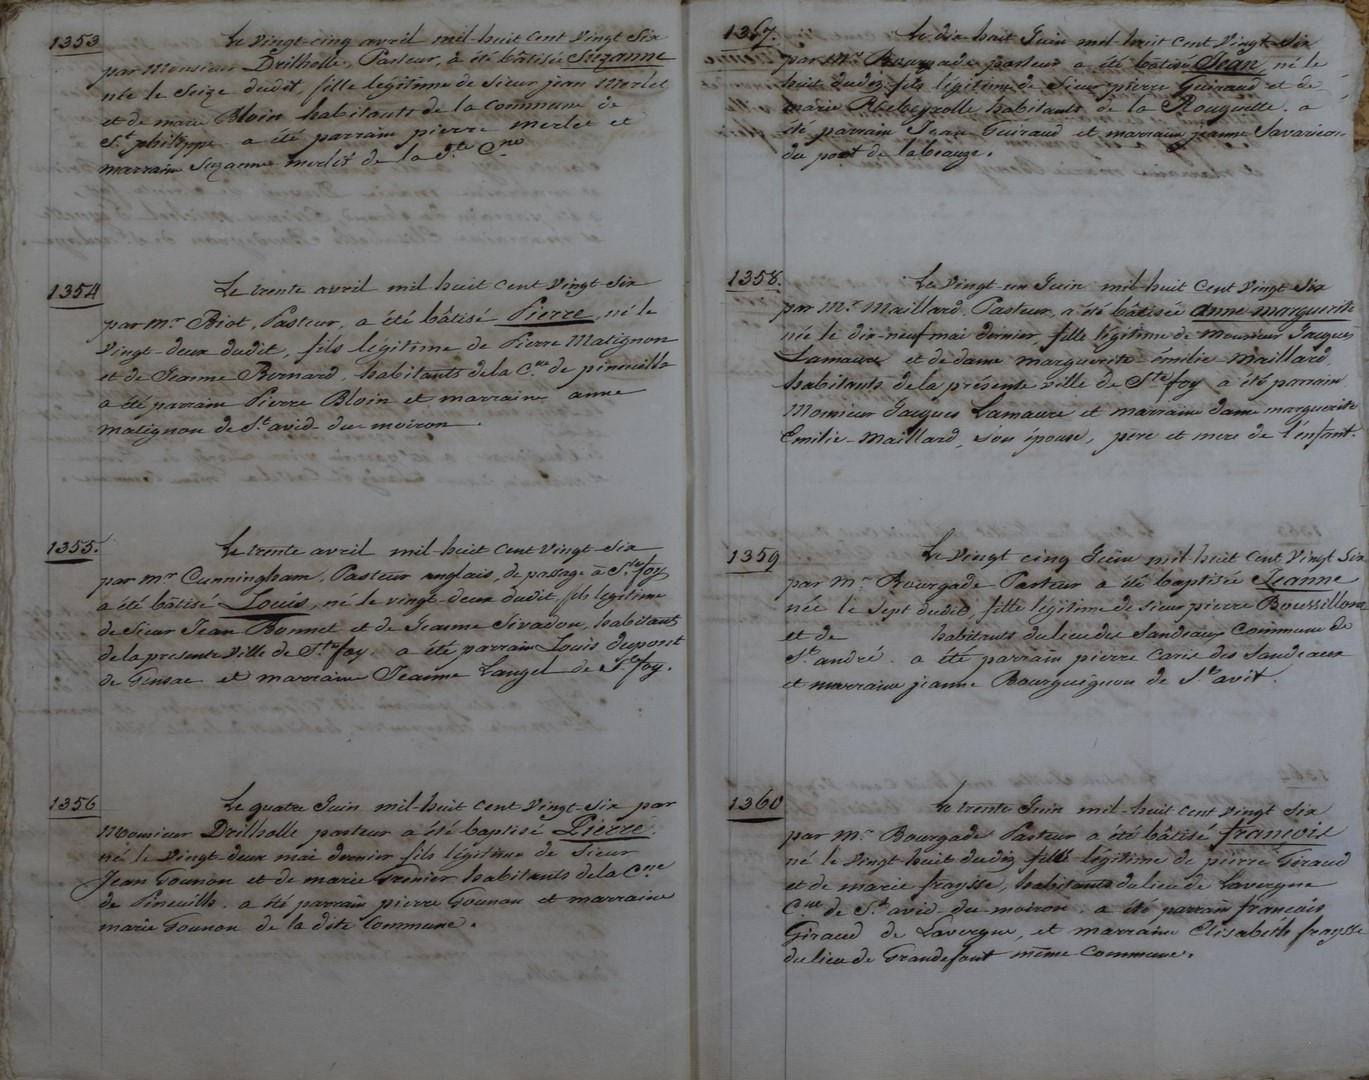 1353
Le vingt-cinq avril mil-huit cent vingt Six
par Monsieur Drilholle, Pasteur, a été bâtisée Suzanne
née le Seize dudit, fille légitime de Sieur jean Merlet
et de marie Bloin habitants de la commune de
St. philippe. a été parrain pierre merlet et
marraine Suzanne merlet de la d.te C.ne
1354
Le trente avril mil huit cent vingt-Six
par mr Biot, Pasteur, a été bâtisé Pierre, né le
vingt-deux dudit, fils légitime de Pierre Matignon
et de Jeanne Bernard, habitants de la C.ne de pineuilh
a été parrain Pierre Bloin et marraine anne
matignon de St. avid-du-moiron.
1355.
Le trente avril mil-huit cent vingt-Six
par mr Cunningham, Pasteur anglais, de passage à Ste foy
a été bâtisé Louis, né le vingt-deux dudit, fils légitime
de Sieur Jean Bonnet et de Jeanne Sivadon, habitants
de la presente ville de Ste foy. a été parrain Louis dupont
de Gensac et marraine Jeanne Laugel de Ste foy.
1356
Le quatre Juin mil-huit cent vingt-Six par
Monsieur Drilholle pasteur a été baptisé Pierre
né le vingt-deux mai dernier fils légitime de Sieur
Jean Gounon et de marie Grenier habitants de la C.ne
de Pineuilh. a été parrain pierre Gounon et marraine
marie Gounon de la dite Commune.
1367.
Le dix-huit Juin mil-huit cent vingt-Six
par mr. Bourgade pasteur a été bâtisé Jean, né le
huit dudit fils légitime de Sieur pierre Guiraud et de
marie habitants de la Rouquette. a
été parrain Jean Guiraud et marraine jeanne Savariaud
du port de labeauze.
1358.
Le vingt un Juin mil-huit cent vingt Six
par Mr Maillard, Pasteur, a été bâtisée anne marguerite
née le dix-neuf mai dernier fille légitime de monsieur Jacques
Lamaure et de dame marguerite émilie Maillard
habitants de la présente ville de Ste foy a été parrain
Monsieur Jacques Lamaure et marraine dame marguerite
Emilie-Maillard, son épouse, père et mere de l'enfant.
1359
Le vingt cinq Juin mil huit cent vingt Six
par mr. Bourgade Pasteur a été baptisée Jeanne
née le Sept dudit fille légitime de Sieur pierre Boussillon
et de habitants du lieu des Sandeaux Commune de
St. andré. a été parrain pierre Caris des Sandeaux
et marraine jeanne Bourguignon de St avit.
1360
Le trente Juin mil-huit cent vingt Six
par mr Bourgade Pasteur a été bâtisé françois
né le vingt-huit dudit fils légitime de pierre Giraud
et de marie fraysse, habitants du lieu de Lavergne
C.ne de St. avid-du-moiron. a été parrain françois
Giraud de Lavergne, et marraine Elisabéth fraysse
du lieu de Grandefont même Commune.